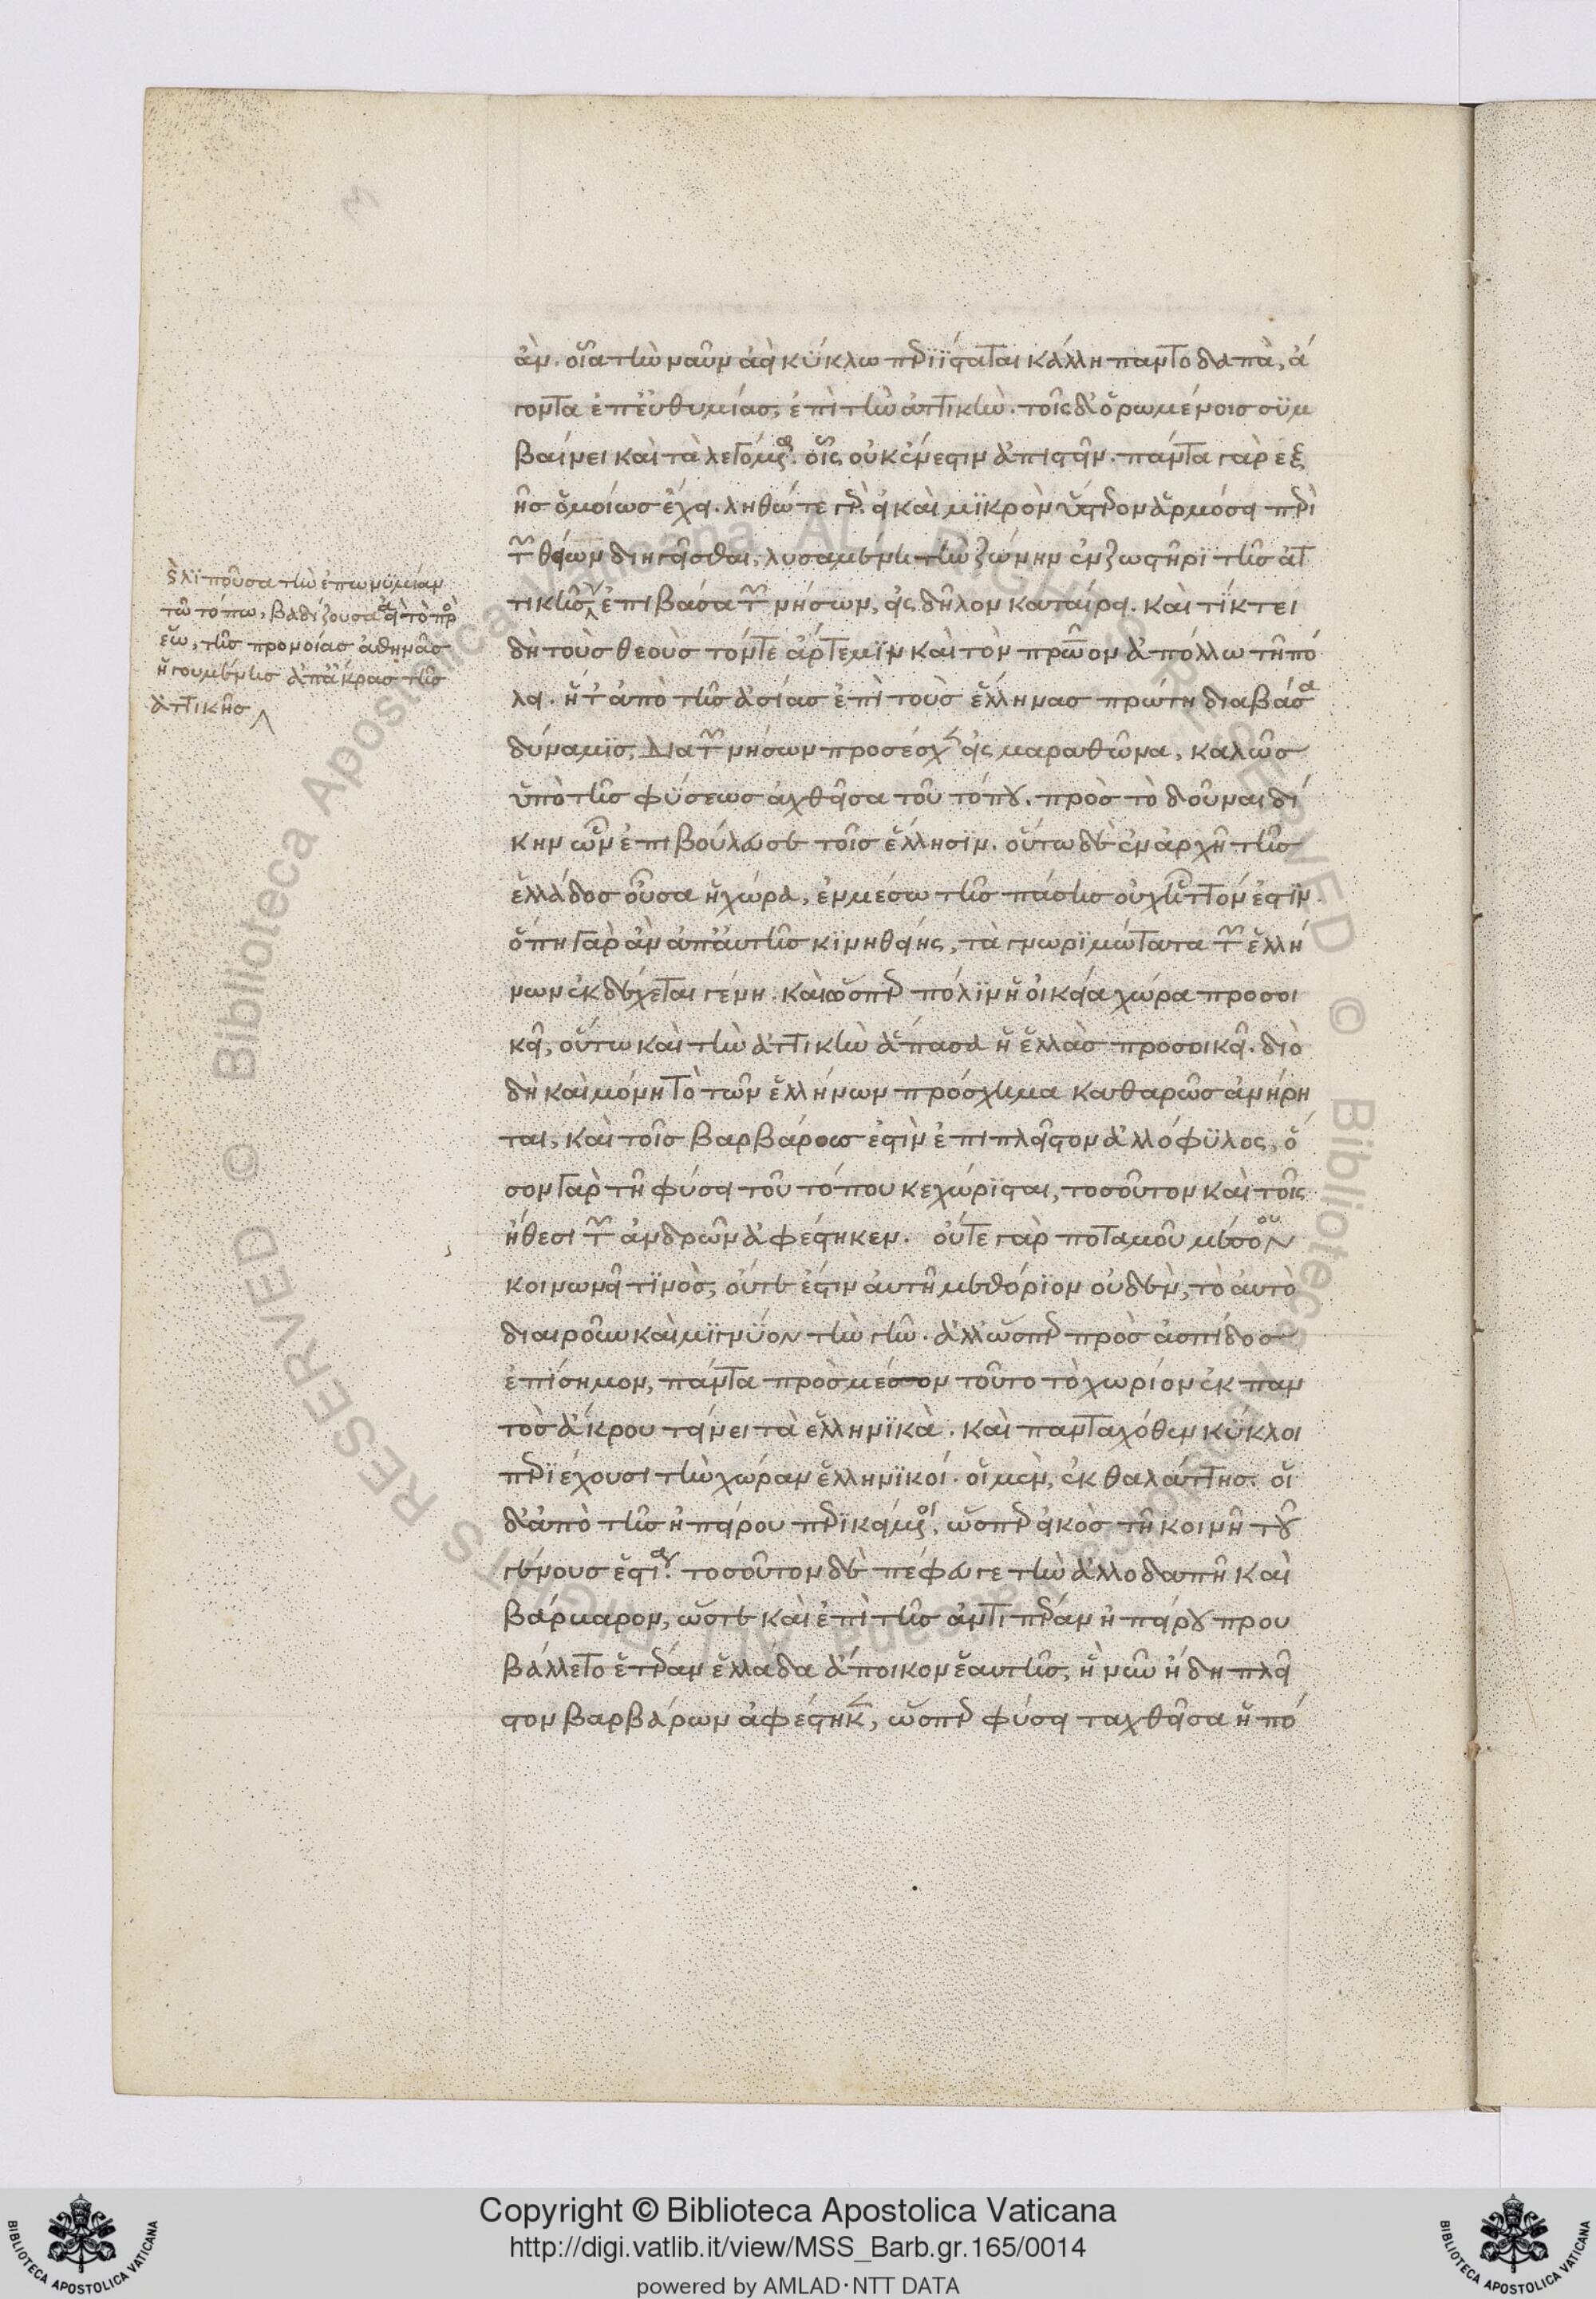 ἂν. οἷα τὴν ναῦν ἀεὶ κύκλω περιίσταται κάλλη παντοδαπὰ, ἄ
γοντα ἐπ' εὐθυμίας, ἐπὶ τὴν ἀττικὴν. τοῖς δ' ὁρωμένοις συμ
βαίνει καὶ τὰ λεγόμενα. οἷς οὐκ ἔνεστιν ἀπιστεῖν. πάντα γὰρ ἑξ
ῆς ὁμοίως ἔχει. ληθώ τε γὰρ. εἰ καὶ μικρὸν ὕστερον ἁρμόσει περὶ
τῶν θείων διηγεῖσθαι, λυσαμένη τὴν ζώνην ἐν ζωστῆρι τῆς ἀτ
τικῆς, ἐπιβᾶσα τῶν νήσων, εἰς δῆλον καταίρει. καὶ τίκτει
δὴ τοὺς θεοὺς τόν τε ἄρτεμιν καὶ τὸν πρῶον ἀπόλλω τῆ πό
λει. ἥ τε ἀπὸ τῆς ἀσίας ἐπὶ τοὺς ἕλληνας πρώτη διαβᾶσα
δύναμις, διὰ τῶν νήσων προσέσχεν εἰς μαραθῶνα, καλῶς
ὑπὸ τῆς φύσεως ἀχθεῖσα τοῦ τόπου. πρὸς τὸ δοῦναι δί
κην ὧν ἐπιβούλευσε τοῖς ἕλλησιν. οὕτω δὲ ἐν ἀρχῆ τῆς
ἑλλάδος οὖσα ἡ χώρα, ἐν μέσω τῆς πάσης οὐχ ἧττόν ἐστιν.
ὅπη γὰρ ἂν ἀπ' αὐτῆς κινηθείης, τὰ γνωριμώτατα τῶν ἑλλή
νων ἐκδέχεται γένη. καὶ ὥσπερ πόλιν ἡ οἰκεία χώρα προσοι
κεῖ, οὕτω καὶ τὴν ἀττικὴν ἅπασα ἡ ἑλλὰς προσοικεῖ. διὸ
δὴ καὶ μόνη τὸ τῶν ἑλλήνων πρόσχημα καθαρῶς ἀνήρη
ται, καὶ τοῖς βαρβάροις ἐστὶν ἐπιπλεῖστον ἀλλόφυλος, ὅ
σον γὰρ τῆ φύσει τοῦ τόπου κεχώρισται, τοσοῦτον καὶ τοῖς
ἤθεσι τῶν ἀνδρῶν ἀφέστηκεν. οὔτε γὰρ ποταμοῦ μέσου
κοινωνεῖ τινὸς, οὔτε ἔστιν αὐτῆ μεθόριον οὐδὲν, τὸ αὐτὸ
διαιροῦν καὶ μιγνύον τὴν γῆν. ἀλλ' ὥσπερ πρὸς ἀσπίδος
ἐπίσημον, πάντα πρὸς μέσον τοῦτο τὸ χωρίον ἐκ παν
τὸς ἄκρου τείνει τὰ ἑλληνικὰ. καὶ πανταχόθεν κύκλοι
περιέχουσι τὴν χώραν ἑλληνικοί. οἱ μὲν, ἐκ θαλάττης. οἱ
δ' ἀπὸ τῆς ἠπείρου περικείμενοι, ὥσπερ εἰκὸς τῆ κοινῆ τοῦ
γένους ἑστία. τοσοῦτον δὲ πέφευγε τὴν ἀλλοδαπῆ καὶ
βάρμαρον, ὥστε καὶ ἐπὶ τῆς ἀντιπέραν ἠπείρου πρου
βάλλετο ἑτέραν ἑλλάδα ἄποικον ἑαυτῆς, ἣ νῦν ἤδη πλεῖ
στον βαρβάρων ἀφέστηκεν, ὥσπερ φύσει ταχθεῖσα ἡ πό
λιποῦσα τὴν ἐπωνυμίαν
τῶ τόπω, βαδίζουσα ἀεὶ τὸ πρὸς
ἕω, τῆς προνοίας ἀθηνᾶς
ἡγουμένης ἀπ' ἄκρας τῆς
ἀττικῆς
Copyright © Biblioteca Apostolica Vaticana
http://digi.vatlib.it/view/MSS_Barb.gr.165/0014
powered by AMLAD·NTT DATA